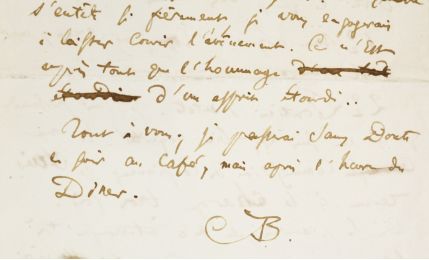 s'entêt si fièrement, je vous engagerais
à laisser courir l'évènement. Ce n'Est
après tout que l'hommage
d'un esprit étourdi..
Tout à vous, je passerai sans Doute
ce soir au Café, mais après l'heure du
Dîner.
CB.